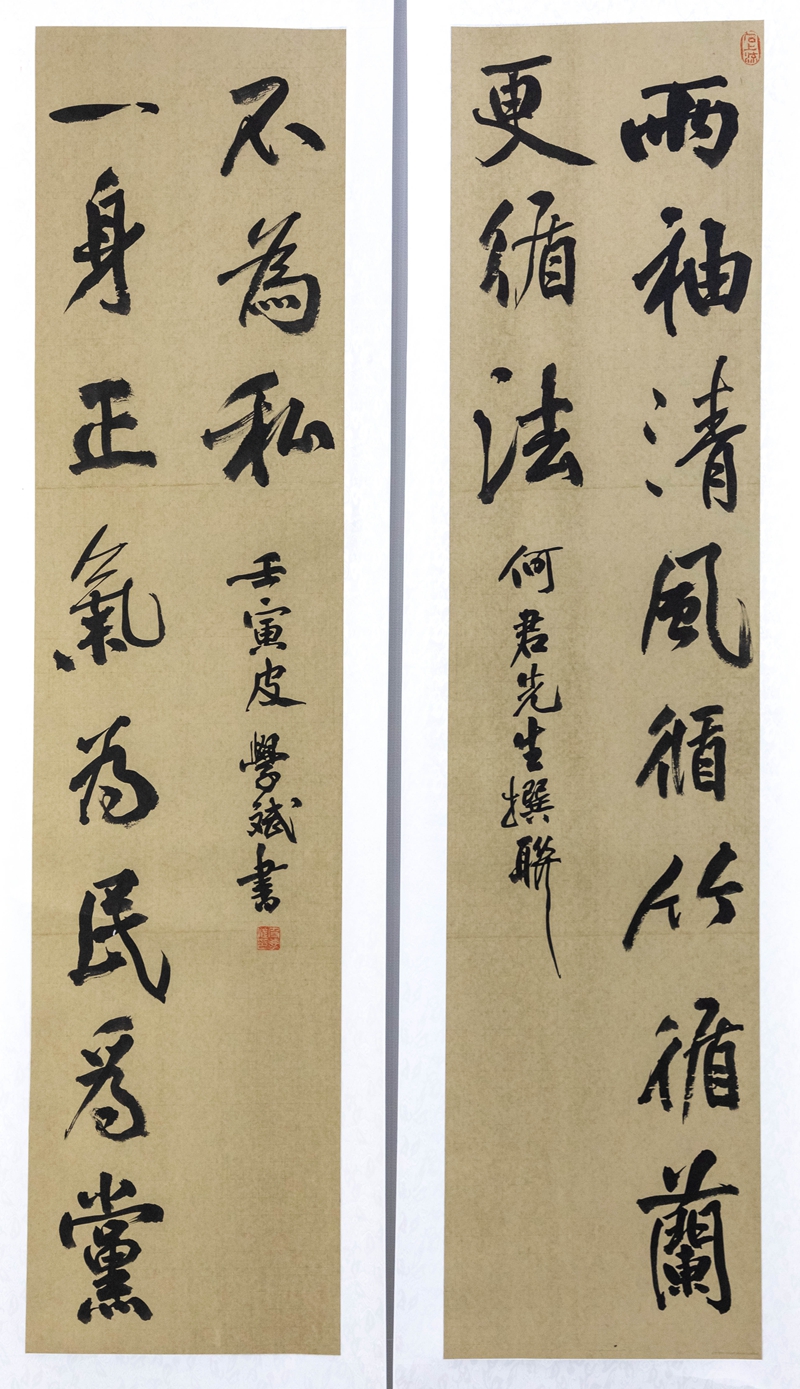 兩袖清風循竹循蘭
更循法
何君先生撰聯
一身正氣為民爲黨
不為私
壬寅皮學斌書